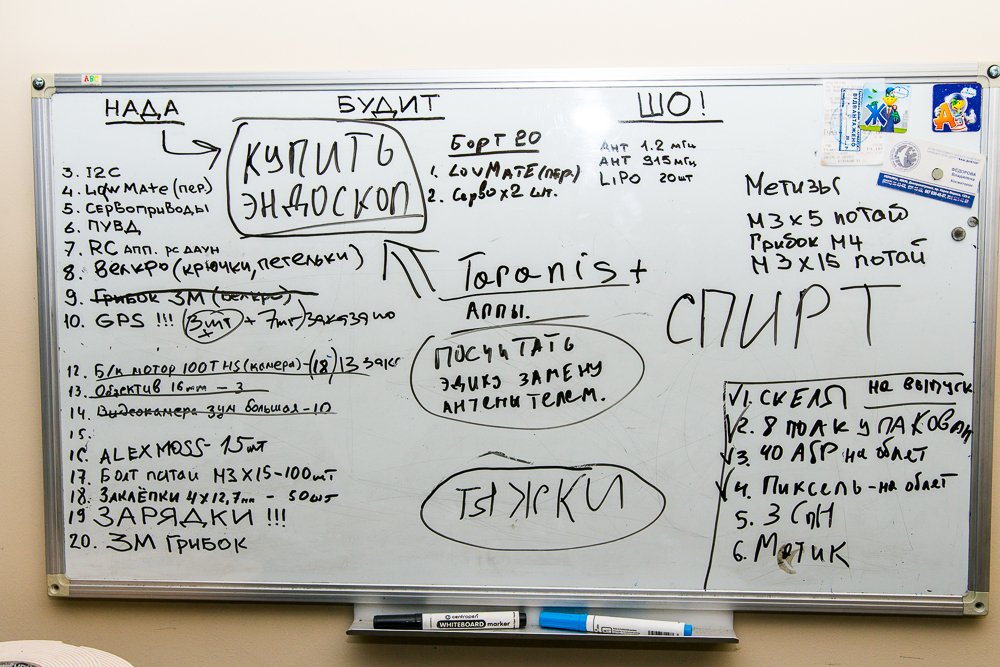 НАДА
БУДИТ
ШО!
КУПИТЬ
ЭНДОСКОП
3. I2C
4. LowMate (пер.)
5. Сервоприводы
6. ПУВД
7. RC апп. рс даун
8. Велкро (крючки, петельки)
9. Грибок 3М (велкро)
10. GPS !!! (3шт + 7шт) заказано
12. Б/к мотор 100T HS (камера) - (18) 13 заказ
13. Объектив 16mm - 3
14. Видеокамера зум большая - 10
15.
16. ALEXMOSS - 15шт
17. Болт потай М3x15-100шт
18. Заклёпки 4x12,7мм - 50шт
19 ЗАРЯДКИ !!!
20. 3М Грибок
Борт 20
1. LowMATE (пер.)
2. Серво x2 шт.
Taranis +
АППЫ.
ПОСЧИТАТЬ
ЭДИКУ ЗАМЕНУ
АНТЕНЫ ТЕЛЕМ.
ТЫЖРКИ
АНТ 1.2 мгц
АНТ 915 мгц
LiPo 20шт
Метизы
М3x5 потай
Грибок М4
М3x15 потай
СПИРТ
на выпуск
1. СКЕЛЯ
2. 8 ПОЛК УПАКОВАН
3. 40 АБР на облет
4. Пиксель - на облет
5. 3 СпН
6. Мотик
ВІДВАНТАЖЕНО
Ж
А
ФЕДОРОВА
centropen
WHITEBOARD marker
ABC